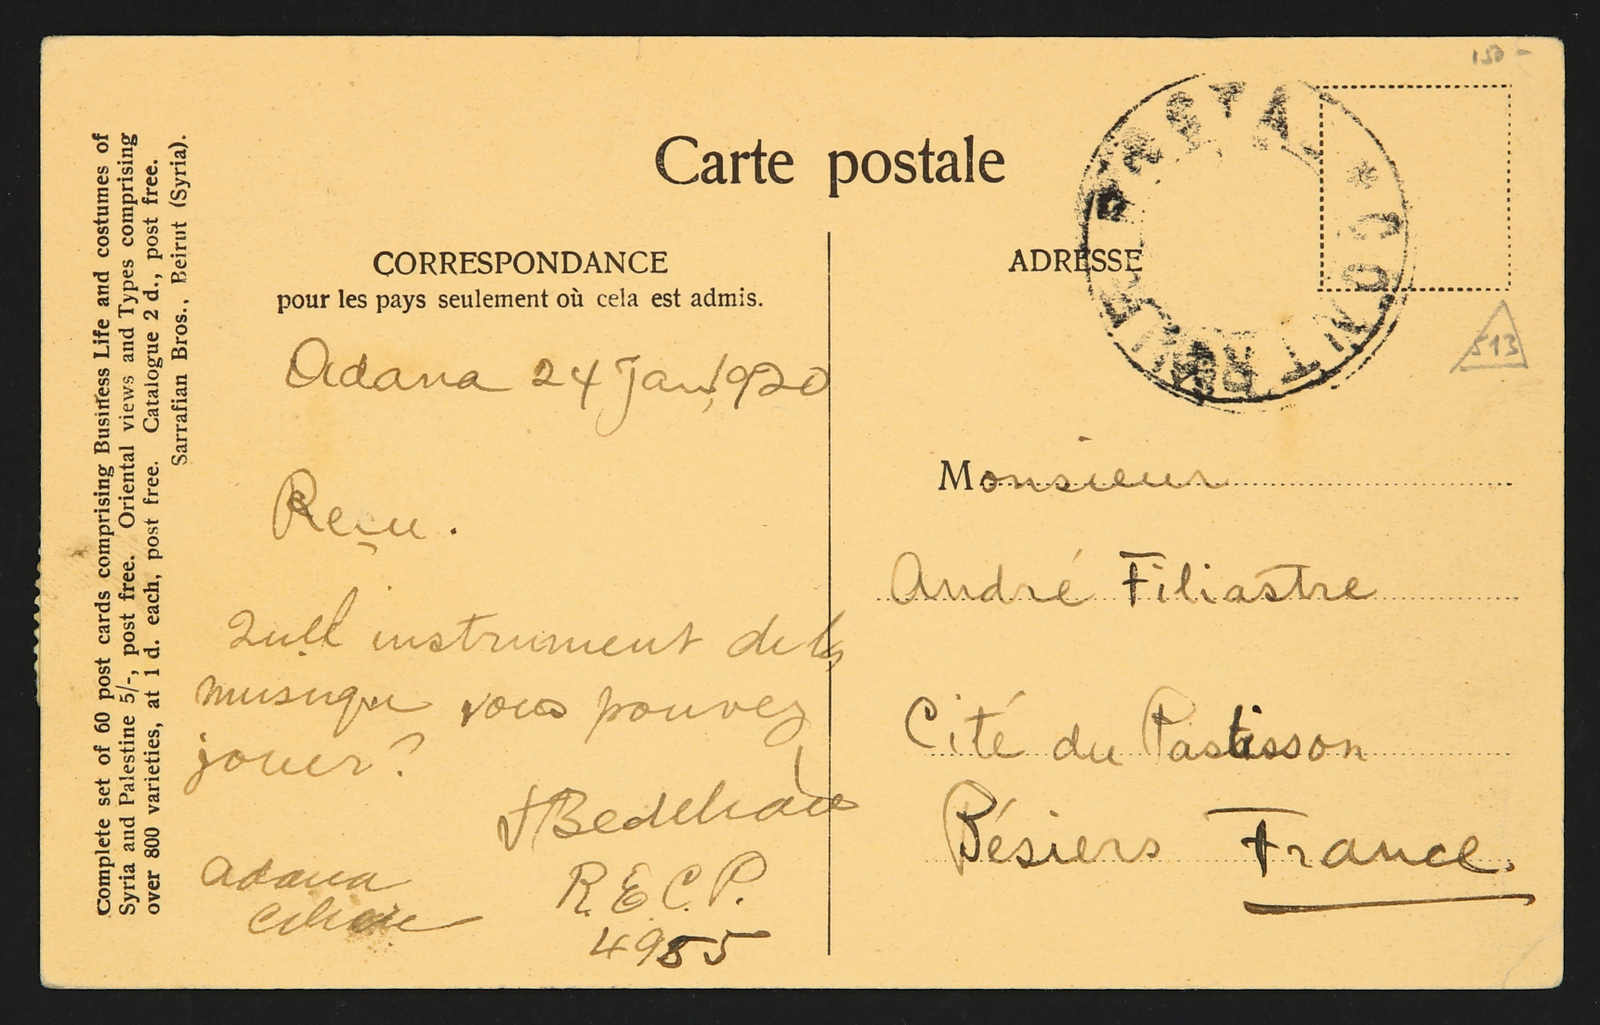 Complete set of 60 post cards comprising Business Life and costumes of
Syria and Palestine 5/-, post free. Oriental views and Types comprising
over 800 varieties, at 1 d. each, post free. Catalogue 2 d., post free.
Sarrafian Bros., Beirut (Syria).
Carte postale
CORRESPONDANCE
pour les pays seulement où cela est admis.
Adana 24 Jan, 1920
Reçu.
Quel instrument de la
musique vous pouvez
jouer?
Adana
Cilicie
R.E.C.P.
4955
ADRESSE
POSTAL * CONTR
150 -
513
Monsieur
André Filiastre
Cité du Pastisson
Bésiers France.